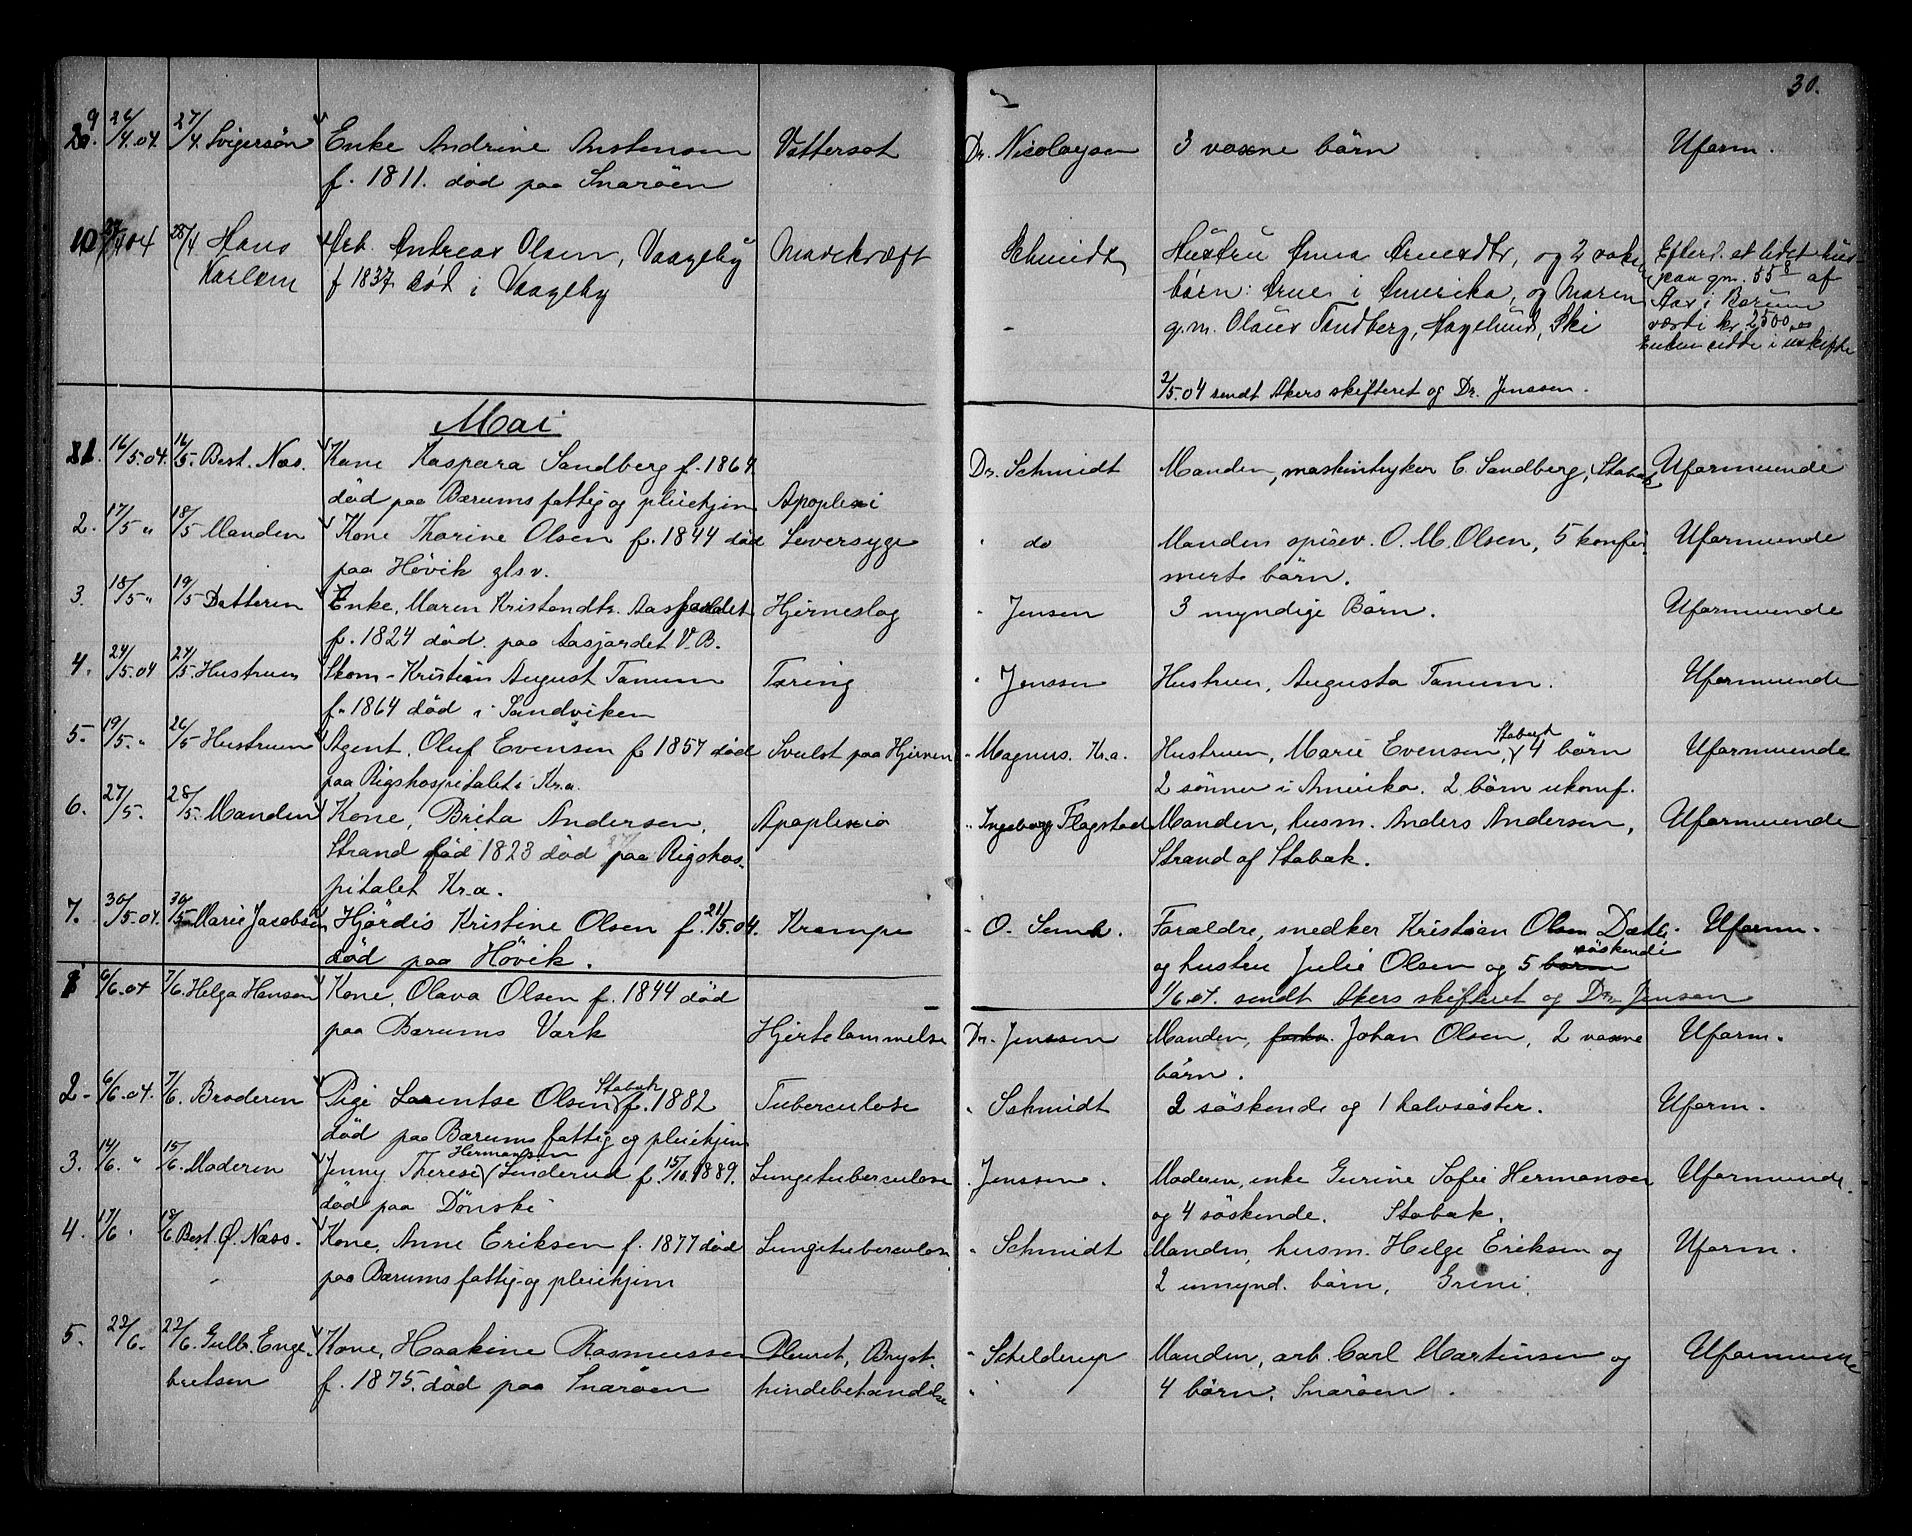 30.
9 26/4.04 27/4. Svigersøn Enke Andrine Anstensen Vattersot Dr. Nicolaysen 3 voxne børn Uform.
f. 1811. død paa Snarøen
10 27/4 04 28/4 Hans Arb. Andreas Olsen, Vaageby Mavekræft Schmidt Hustru Anna Arnesdtr, og 2 voksne Efterl. et lidet hus
Karlsen f 1837 død i Vaageby børn: Arne i Amerika, og Maren paa gn. 55 8 af
g.m. Olaus Sandberg, Hagelund, Ski Aas i Bærum
værdi kr 2500,00
Enken sidde i uskifte
2/5.04 sendt Akers skifteret og Dr. Jenssen.
Mai
1. 16/5.04. 16/5. Best. Næs. Kone Kaspara Sandberg f. 1864 Dr. Schmidt Manden, maskintryker C. Sandberg, Stabak Uformuende
død paa Bærums fattig og pleiehjem Apoplexi
2. 17/5 " 18/5 Manden Kone Thorine Olsen f. 1844 død Leversyge " do Manden spisev. O. M. Olsen, 5 konfir Uformuende
paa Høvik glsv. merte børn.
3. 18/5 " 19/5 Datteren Enke, Maren Kristendtr. Aasjordet Hjerneslag " Jensen 3 myndige Børn. Uformuende
f. 1824 død. paa Aasjordet V. B.
4. 24/5.04 24/5 Hustruen Skom- Kristian August Tanum Tæring " Jenssen Hustruen, Augusta Tanum. Uformuende
f. 1864 død i Sandviken
5. 19/5. " 26/5 Hustruen Agent, Oluf Evensen f. 1857 død Svulst paa Hjernen " Magnus. Kr.a. Hustruen, Marie Evensen, Stabæk 4 børn Uformuende
paa Rigshospitalet i Kr.a. 2 sønner i Amerika. 2 børn ukonf.
6. 27/5. 28/5. Manden Kone, Brita Andersen, Apoplexia " Ingeborg Flagstad Manden, husm. Anders Andersen, Uformuende
Strand fød 1823 død paa Rigshos- Strand af Stabak.
pitalet Kr.a.
7. 30/5.04. 30/5 Marie Jacobsen Hjørdis Kristine Olsen f. 21/5.04. Krampe " O. Semb. Forældre, snedker Kristian Olsen Dæhli. Uform.
død paa Høvik. og hustru Julie Olsen og 5 børn søskende
1/6.04. sendt Akers skifteret og Dr. Jensen
1 6/6.04 7/6. Helga Hansen Kone, Olava Olsen f. 1844 død
paa Bærums Værk Hjertelammelse Dr. Jenssen Manden, Johan Olsen, 2 voxne Uform.
børn.
2. 6/6.04. 7/6. Broderen Pige Laurentse Olsen Stabak f. 1882 Tuberculose " Schmidt 2 søskende og 1 halvsøster. Uform.
død paa Bærums fattig og pleiehjem
3. 14/6. " 15/6. Moderen Jenny Therese Hermansen Linderud f. 15/10.1889. Lungetuberculose " Jenssen. Moderen, enke Gurine Sofie Hermansen Uformuende.
død paa Dønski og 4 søskende. Stabak.
4. 17/6 " 18/6 Best. O. Næss. Kone, Anne Eriksen f. 1877 død Lungetuberculose " Schmidt Manden, husm. Helge Eriksen og Uform.
paa Bærums fattig- og pleiehjem 2 umynd. børn, Grini.
5. 22/6. 22/6. Gulb. Enge- Kone, Haakine Rasmussen Pleurit, Bryst- " Schelderup Manden, arb. Carl Martinsen og Uformuende
bretsen f. 1875. død paa Snarøen hindebetændelse " 4 børn, Snarøen.